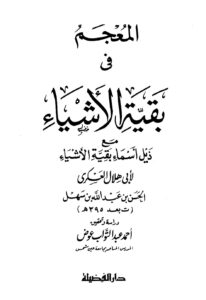 المعجم
في
بقية الأشياء
مع
ذيل أسماء بقية الأشياء
لأبي هلال العسكري
الحسن بن عبد الله بن سهل
(ت بعد ٣٩٥هـ)
دراسة وتحقيق
أحمد عبد التواب عوض
دار الفضيلة